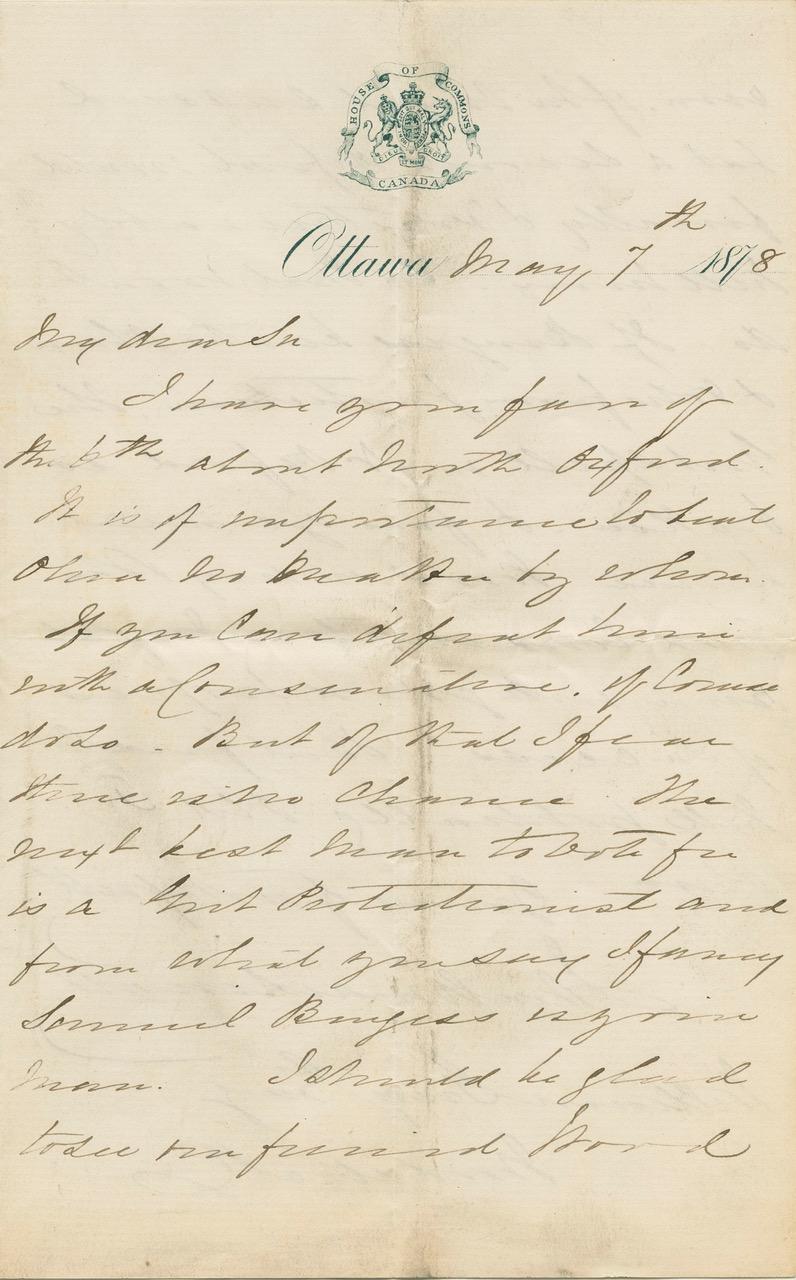 HOUSE OF COMMONS
DIEU ET MON DROIT
CANADA
Ottawa May 7th 1878
My dear Sir
I have your favr of
the 6th about North Oxford.
It is of importance to beat
Oliver no matter by whom.
If you can defeat him
with a Conservative, of course
do so - But of that I fear
there is no chance. The
next best man to vote for
is a Grit Protectionist and
from what you say I fancy
Samuel Burgess is your
man. I should be glad
to see our friend Wood